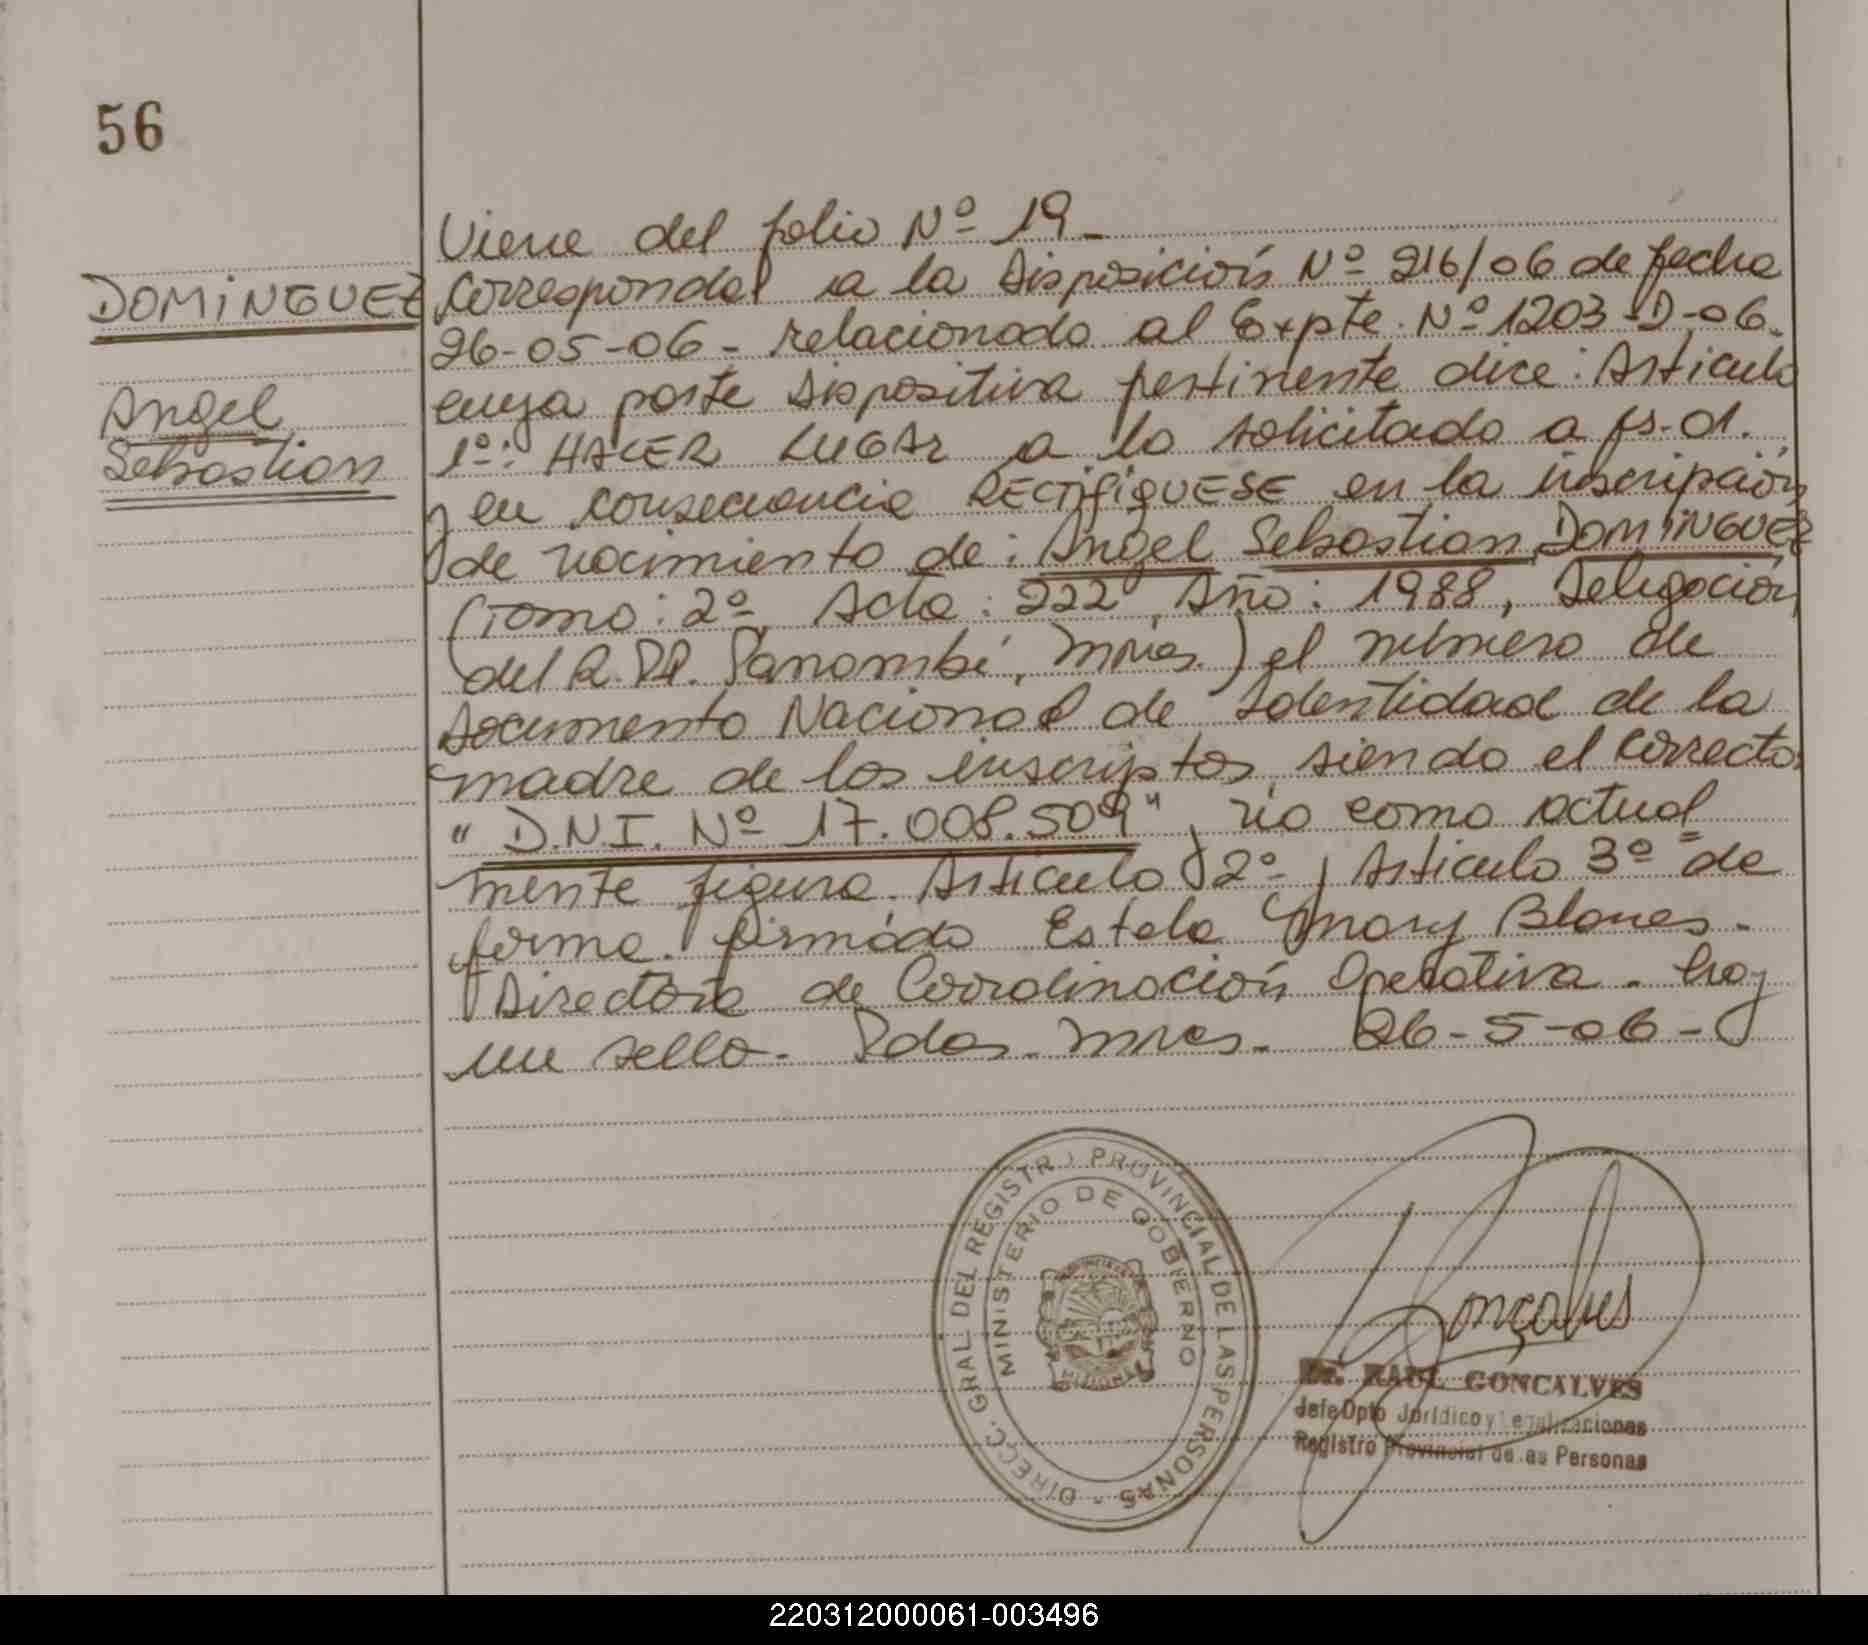 56
Viene del folio Nº 19-
DOMINGUEZ
Angel
Sebastian
Correspondel a la Disposición Nº 216/06 de fecha
26-05-06- relacionado al Expte. Nº 1203-D-06-
cuya parte Dispositiva pertinente dice: Articulo
1º: HACER LUGAR a lo solicitado a fs. 01.
y en consecuencia RECTIFIQUESE en la inscripción
de nacimiento de: Angel Sebastian DOMINGUEZ
(Tomo: 2º, Acta: 222, Año: 1988, Delegación
del R.P.P. Panambí, Mnes.) el número de
Documento Nacional de Identidad de la
madre de los inscriptos, siendo el correcto:
"D.N.I. Nº 17.008.509", no como actual=
mente figura. Articulo 2º y Articulo 3º de
forma. firmado Estela Mary Blanes-
Directora de Coordinación Operativa. hay
un sello- Pdas. Mnes- 26-5-06-
DIRECC. GRAL DEL REGISTRO PROVINCIAL DE LAS PERSONAS -
MINISTERIO DE GOBIERNO
Gonçalves
Dr. RAUL GONCALVES
Jefe Dpto Jurídico y Legalizaciones
Registro Provincial de las Personas
220312000061-003496